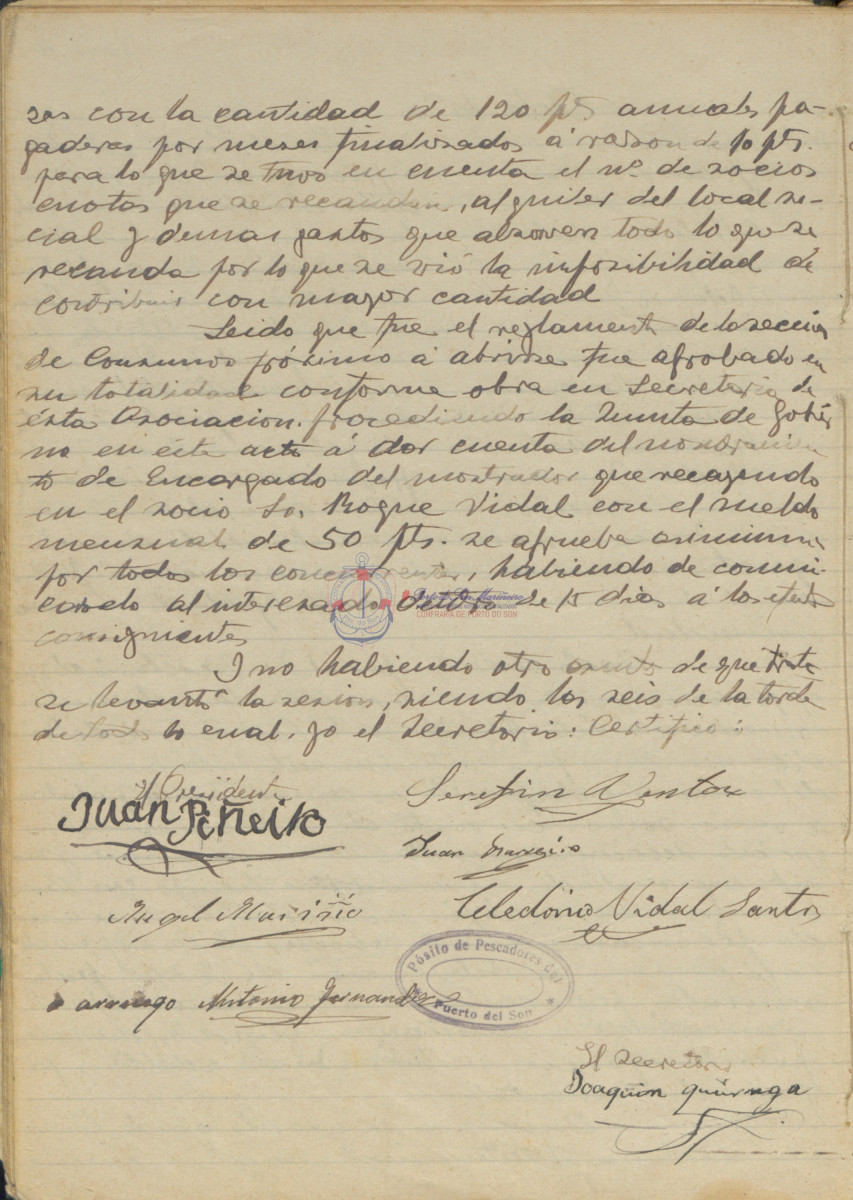 zas con la cantidad de 120 pts anuales pa-
gaderas por meses finalizados á razon de 10 pts.
para lo que se tuvo en cuenta el nº de socios
cuotas que se recaudan, alquiler del local so-
cial y demas gastos que absoven todo lo que se
recauda por lo que se vió la imposibilidad de
contribuir con mayor cantidad
Leido que fue el reglamento de la seccion
de Consumos próximo á abrirse fue aprobado en
su totalidad conforme obra en Secretaria de
ésta Asociacion. procediendo la Junta de Gobier
no en éste acto á dar cuenta del nombramien
to de Encargado del mostrador que recayendo
en el socio Sr. Roque Vidal con el sueldo
mensual de 50 pts. se aprueba
por todos los concurrentes, habiendo de comuni-
carselo al interesado dentro de 15 dias á los efectos
consiguientes
I no habiendo otro asunto de que trata
se levantó la sesion, siendo las seis de la tarde
de todo lo cual, yo el Secretario: Certifico:
El Presidente
Juan Piñeiro
Serafin Ventos
Juan
Angel Mariño
Celedonio Vidal Santos
Pósito de Pescadores del
Puerto del Son
á arruego Antonio Fernandez
CONFRARÍA DE PORTO DO SON
El Secretario
Joaquin Quiroga